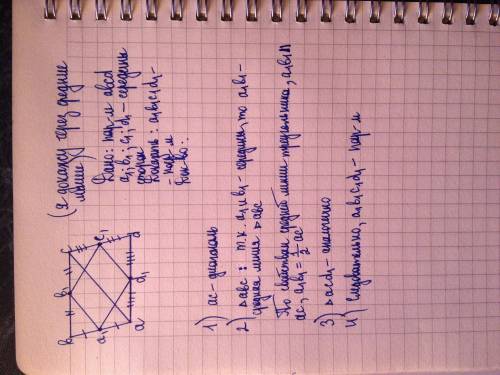 (я докажу через средние
линии)
Дано: пар-м abcd
a₁; b₁; c₁; d₁ - середины
сторон
Доказать: a₁b₁c₁d₁ -
- пар-м
Док-во:
b b₁ c
a₁ c₁
a d₁ d
1) ac - диагональ
2) ▵abc: т.к. a₁ и b₁ - середины, то a₁b₁ -
средняя линия ▵abc
По свойствам средней линии треугольника, a₁b₁ ||
ac, a₁b₁ = 1/2 ac
3) ▵acd₁ - аналогично
4) Следовательно, a₁b₁c₁d₁ - пар-м